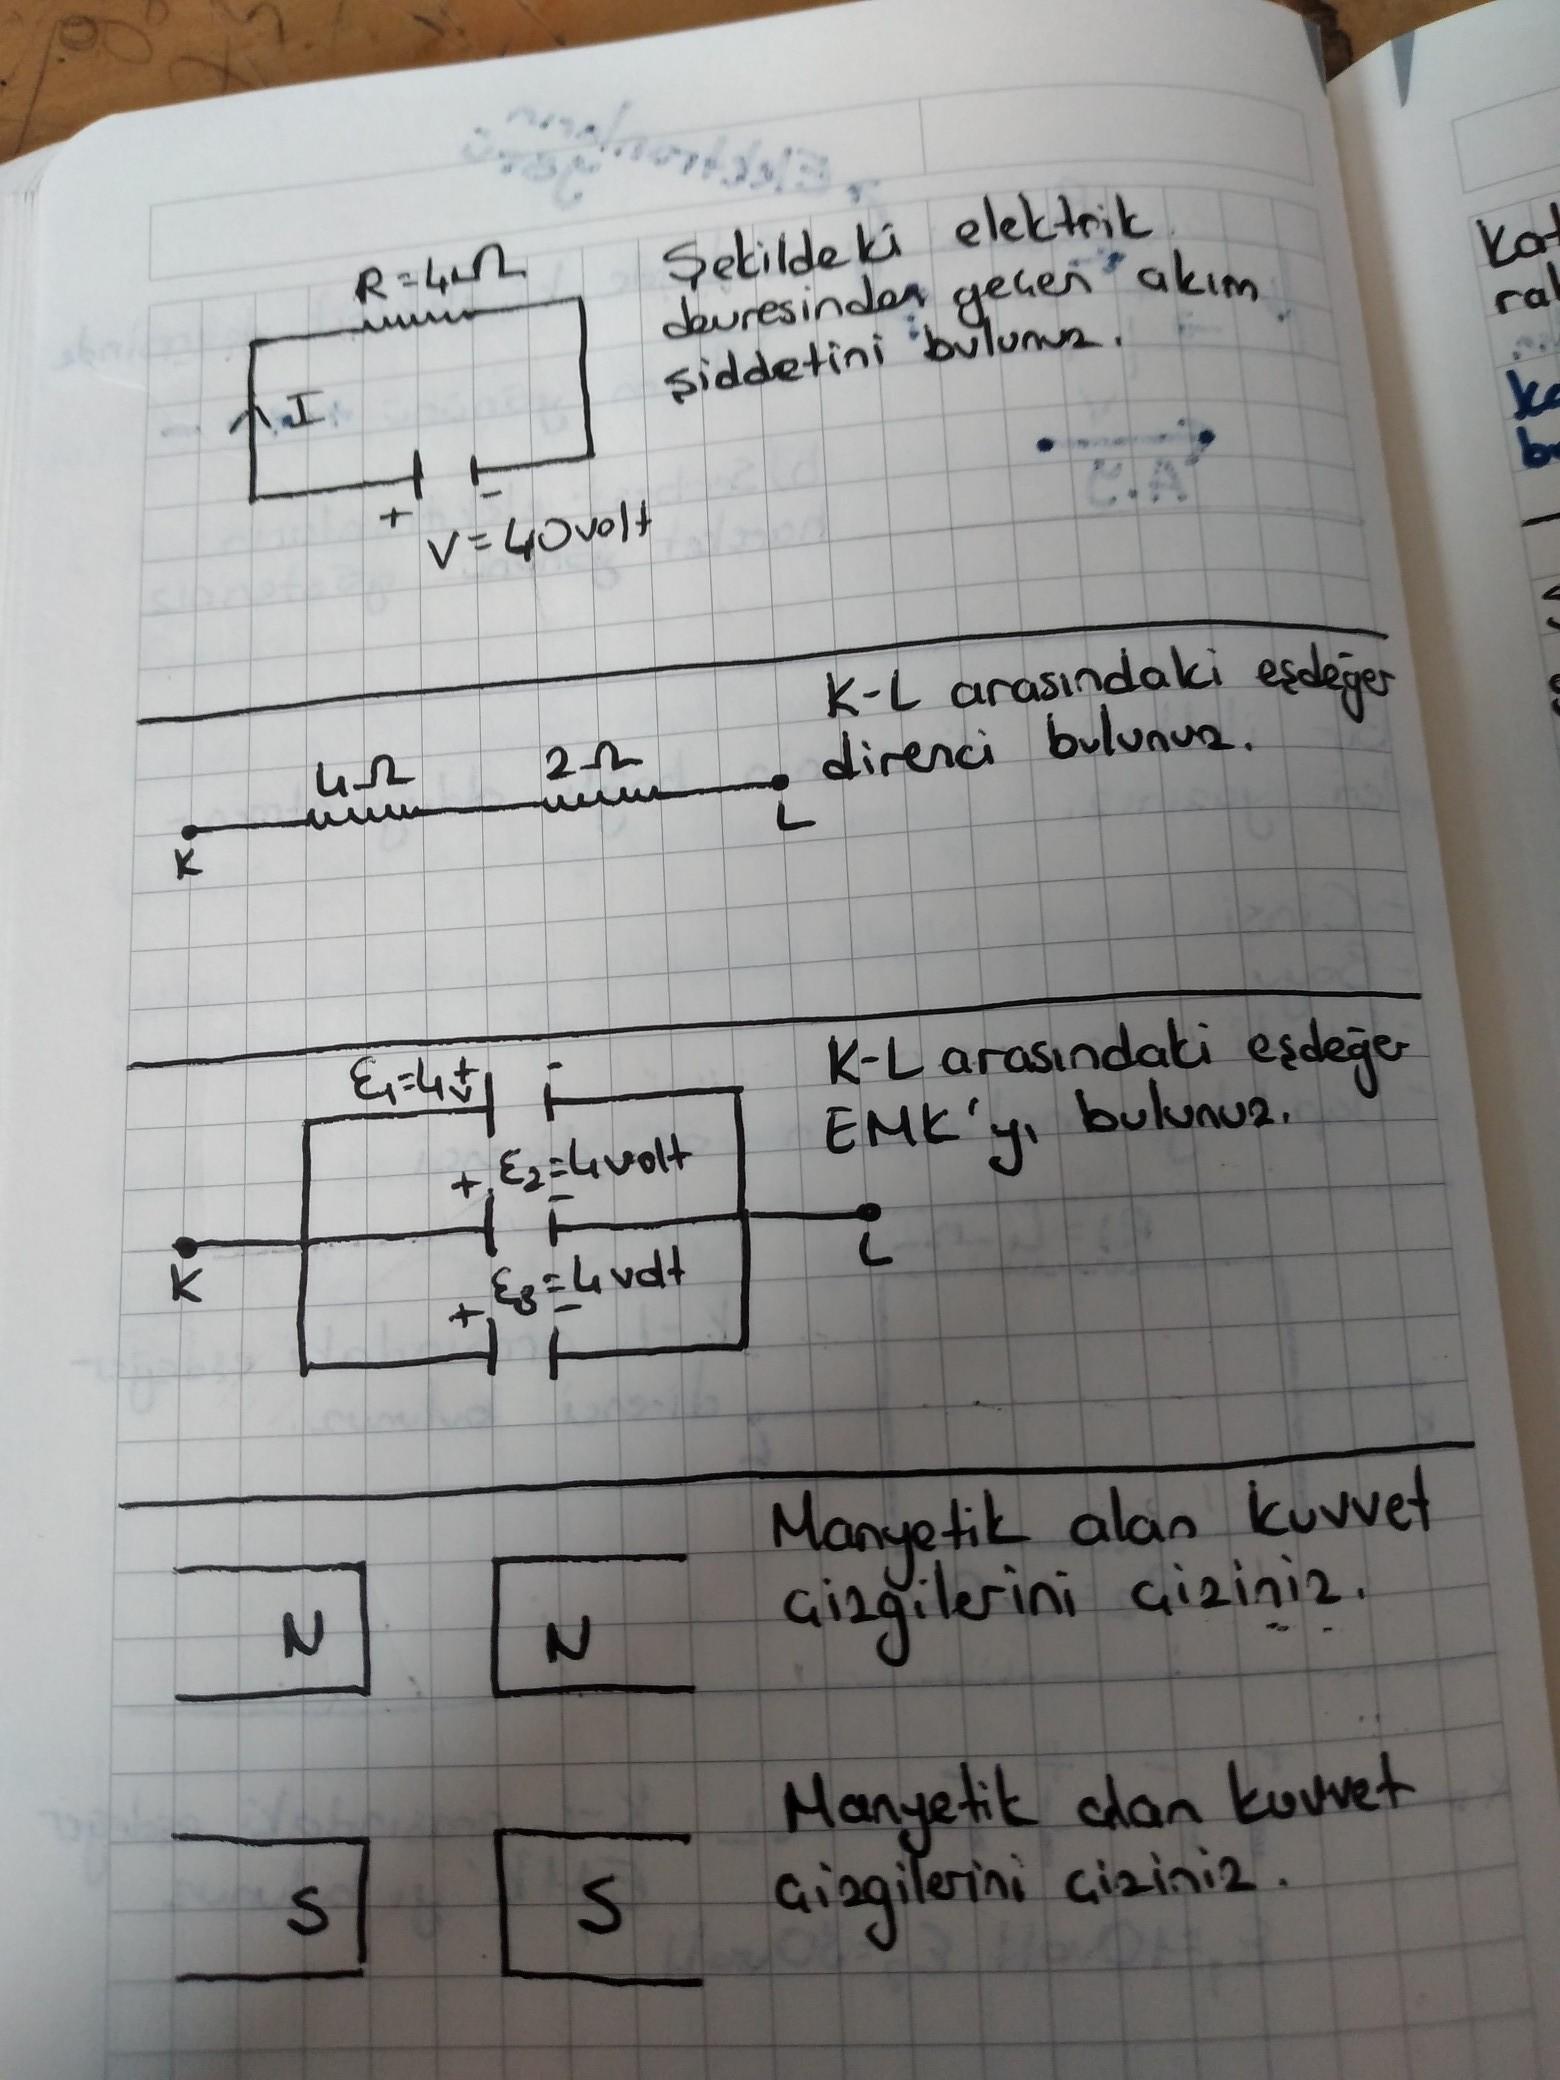 R=4Ω
Şekildeki elektrik
devresinden geçen akım
şiddetini bulunuz.
I
+
-
V=40volt
K-L arasındaki eşdeğer
direnci bulunuz.
4Ω
2Ω
K
L
K-L arasındaki eşdeğer
EMK'yı bulunuz.
ε1=4v
+
-
+
ε2=4volt
-
K
L
+
ε3=4volt
-
Manyetik alan kuvvet
çizgilerini çiziniz.
N
N
Manyetik alan kuvvet
çizgilerini çiziniz.
S
S